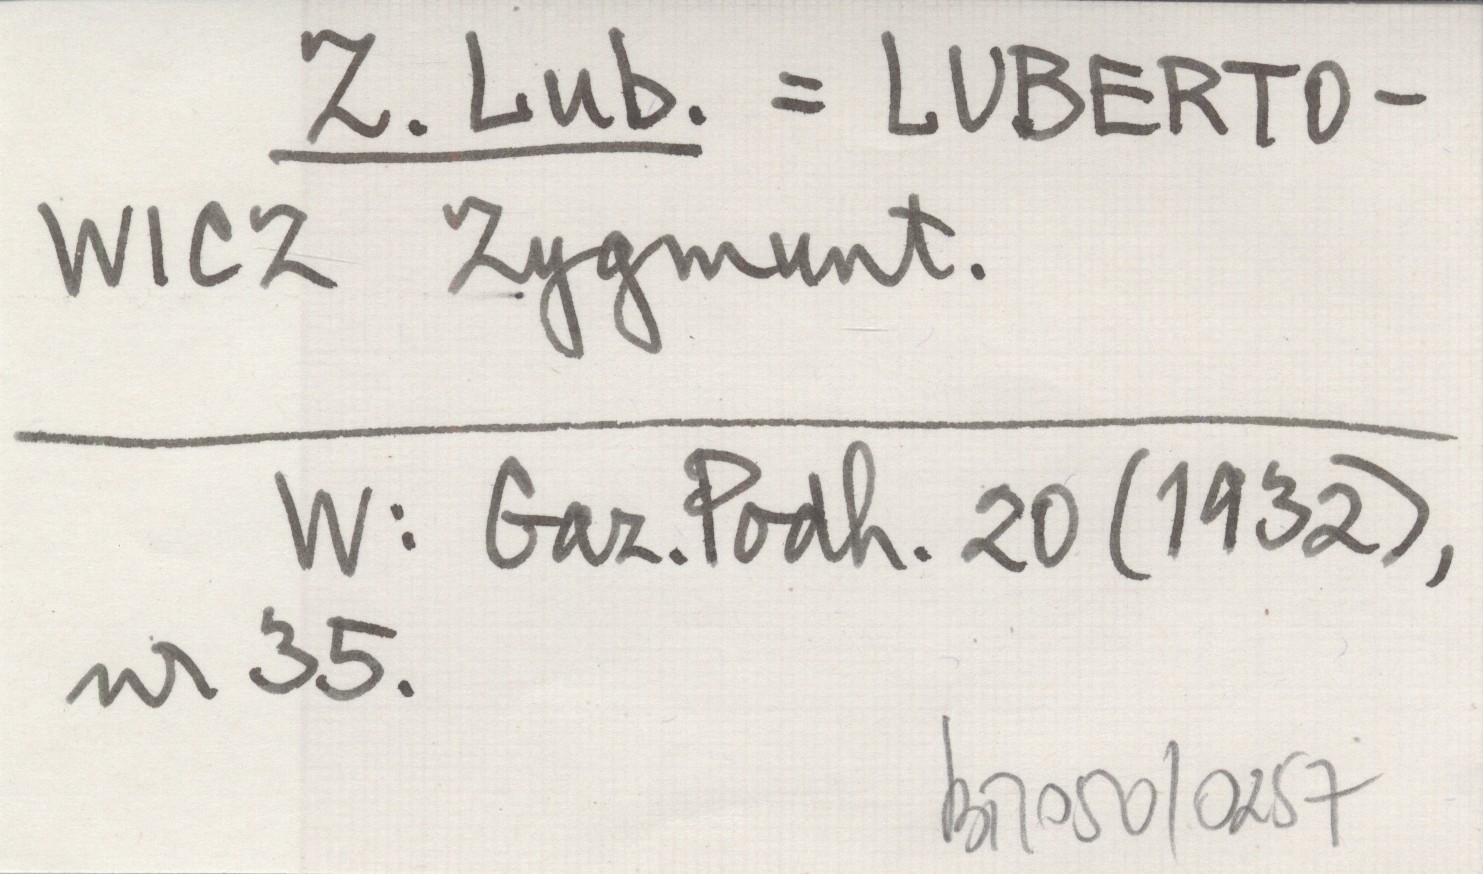 Z. Lub. = LUBERTO-
WICZ Zygmunt.
W: Gaz. Podh. 20 (1932),
nr 35.
bn050/0257